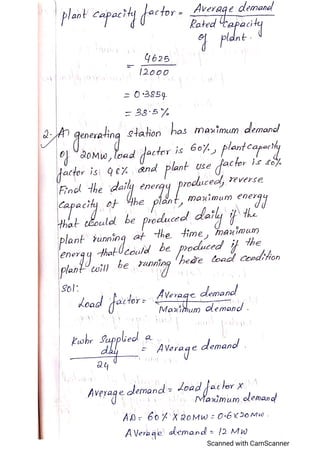 plant capacity factor = Average demand
Rated capacity
of plant.
= 4625
12000
= 0.3854
= 38.5%
2. A generating station has maximum demand
of 20MW, load factor is 60%, plant capacity
factor is 48% and plant use factor is 80%
Find the daily energy produced, reverse
capacity of the plant, maximum energy
that could be produced daily if the
plant running at the time, maximum
energy that could be produced if the
plant will be running here load condition
sol:
Load factor = Average demand
Maximum demand.
Kwhr supplied a
day = Average demand
24
Average demand = Load factor x
Maximum demand
AD = 60% x 20MW = 0.6x20MW.
Average demand = 12 MW
Scanned with CamScanner